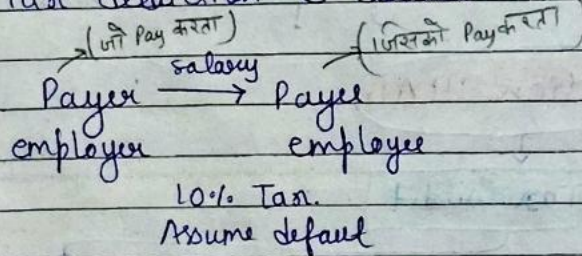 (जो Pay करता)
(जिसको Pay करता
salary
Payer → Payee
employer employee
10% Tax.
Assume defaut